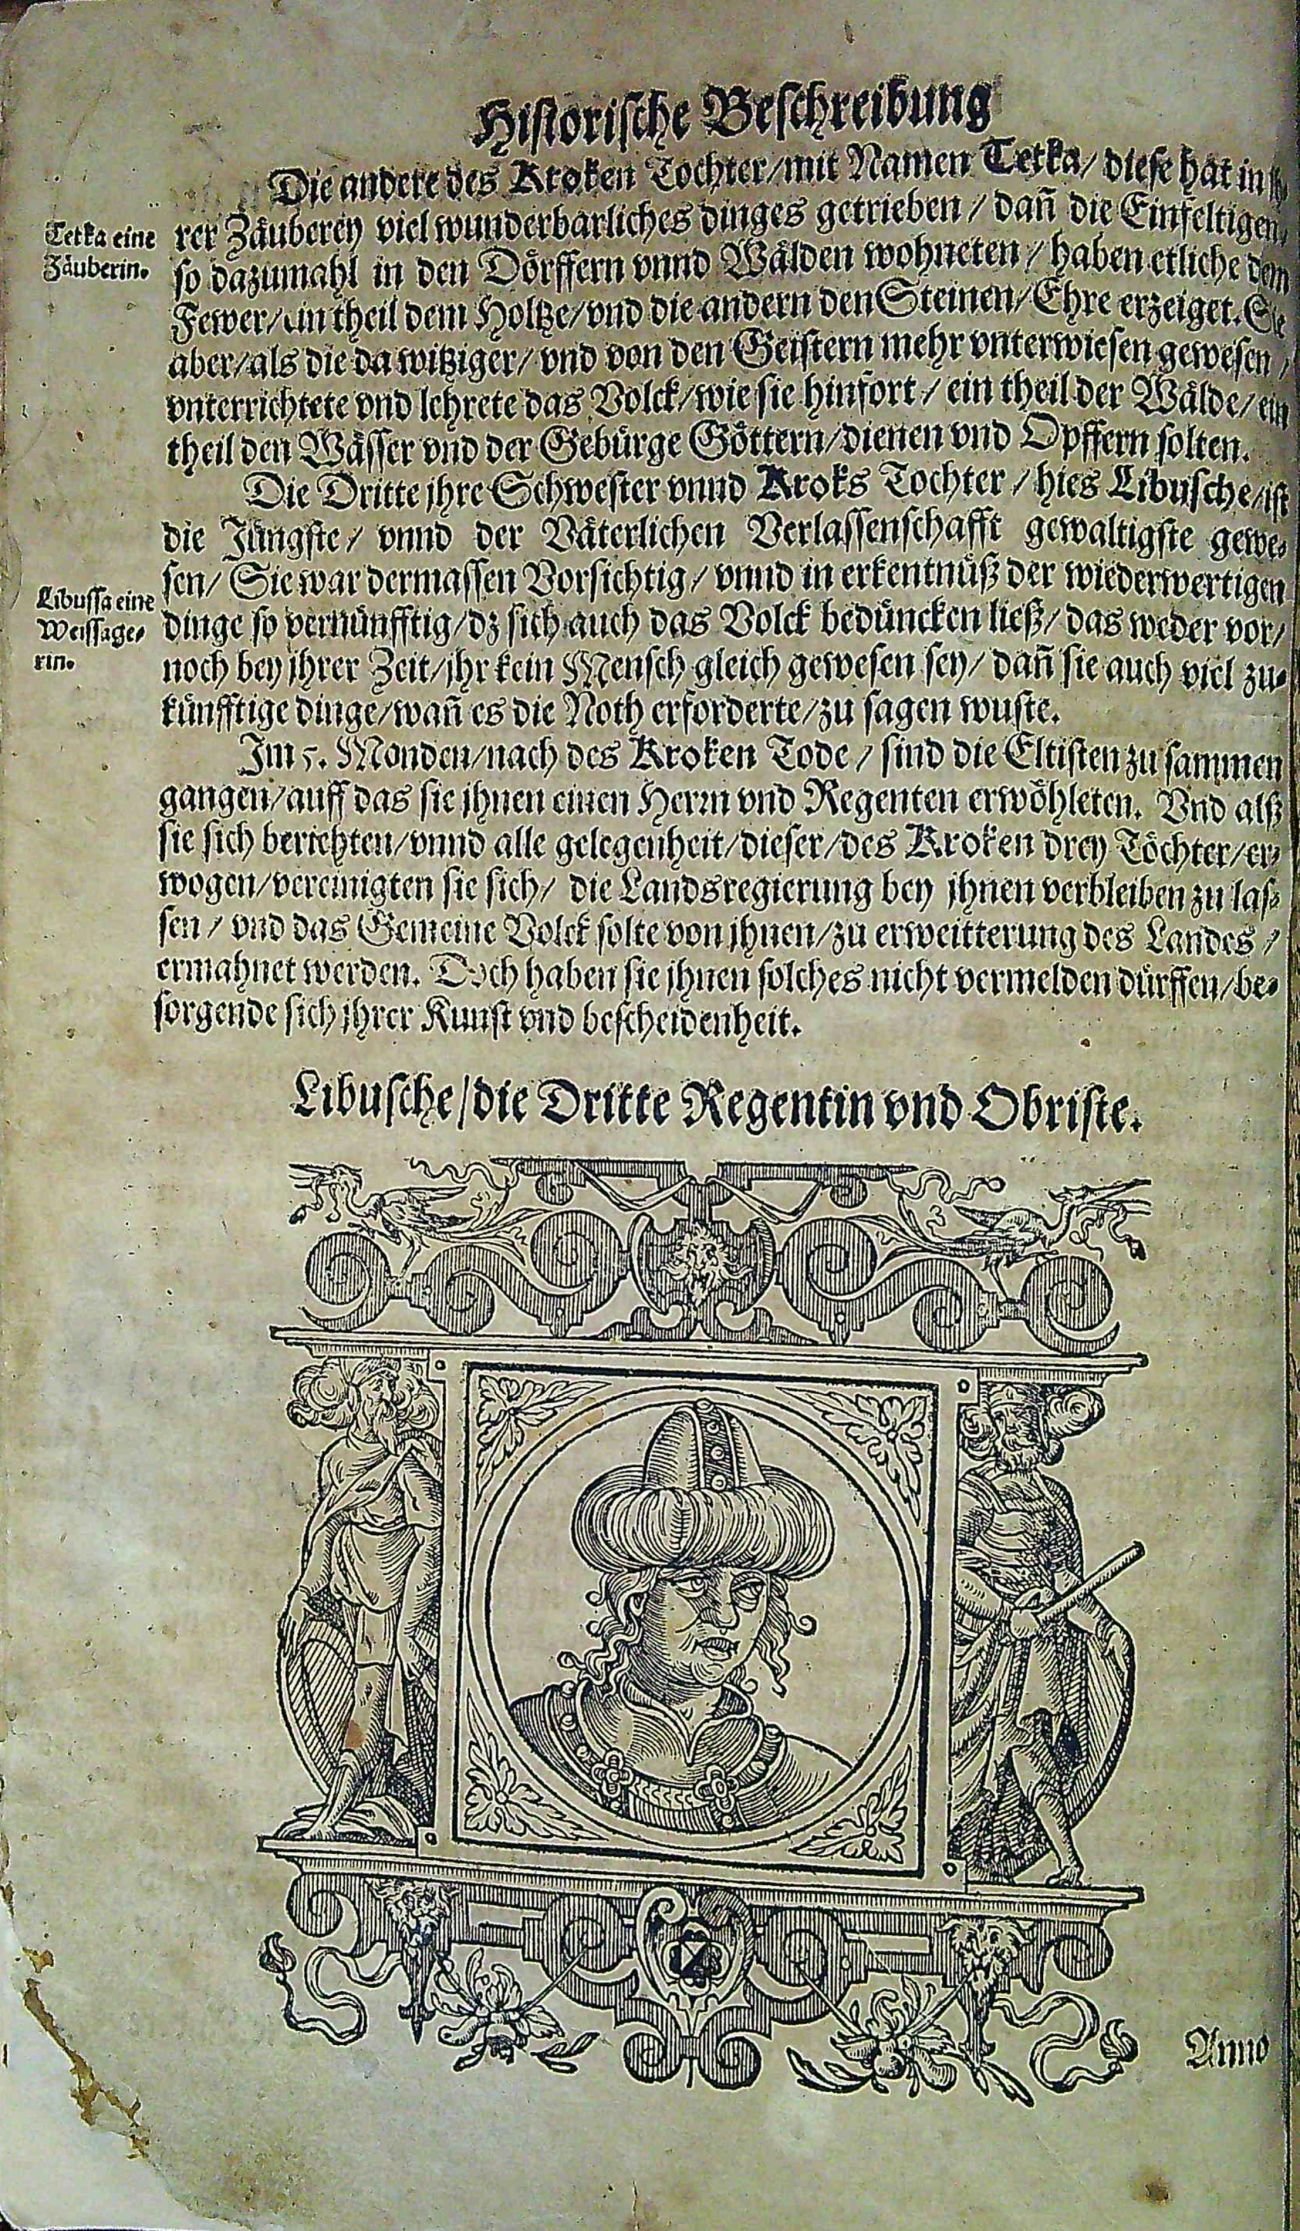 Historische Beschreibung
Die andere des Kroken Tochter/mit Namen Tetka/ diese hat in jh-
Tetka eine
Zäuberin.
rer Zäuberey viel wunderbarliches dinges getrieben / dañ die Einfeltigen,
so dazumahl in den Dörffern vnnd Wälden wohneten / haben etliche dem
Fewer/ ein theil dem Holtze/vnd die andern den Steinen/Ehre erzeiget. Sie
aber/als die da witziger/ vnd von den Geistern mehr vnterwiesen gewesen /
vnterrichtete vnd lehrete das Volck/wie sie hinfort / ein theil der Wälde/ ein
theil den Wässer vnd der Gebürge Göttern/dienen vnd Opffern solten.
Die Dritte jhre Schwester vnnd Kroks Tochter / hies Libusche/ist
die Jüngste / vnnd der Väterlichen Verlassenschafft gewaltigste gewe-
Libussa eine
Weissage-
rin.
sen/ Sie war dermassen Vorsichtig / vnnd in erkentnüß der wiederwertigen
dinge so vernünfftig/dz sich auch das Volck bedüncken ließ/ das weder vor/
noch bey jhrer Zeit/jhr kein Mensch gleich gewesen sey/ dañ sie auch viel zu-
künfftige dinge/wañ es die Noth erforderte/zu sagen wuste.
Im 5. Monden/nach des Kroken Tode / sind die Eltisten zu sammen
gangen/auff das sie jhnen einen Herrn vnd Regenten erwöhleten. Vnd alß
sie sich berichten/vnnd alle gelegenheit/dieser/des Kroken drey Töchter/er-
wogen/vereinigten sie sich/ die Landsregierung bey jhnen verbleiben zu las-
sen / vnd das Gemeine Volck solte von jhnen/zu erweitterung des Landes /
ermahnet werden. Doch haben sie jhnen solches nicht vermelden dürffen/be-
sorgende sich jhrer Kunst vnd bescheidenheit.
Libusche/die Dritte Regentin vnd Obriste.
Anno